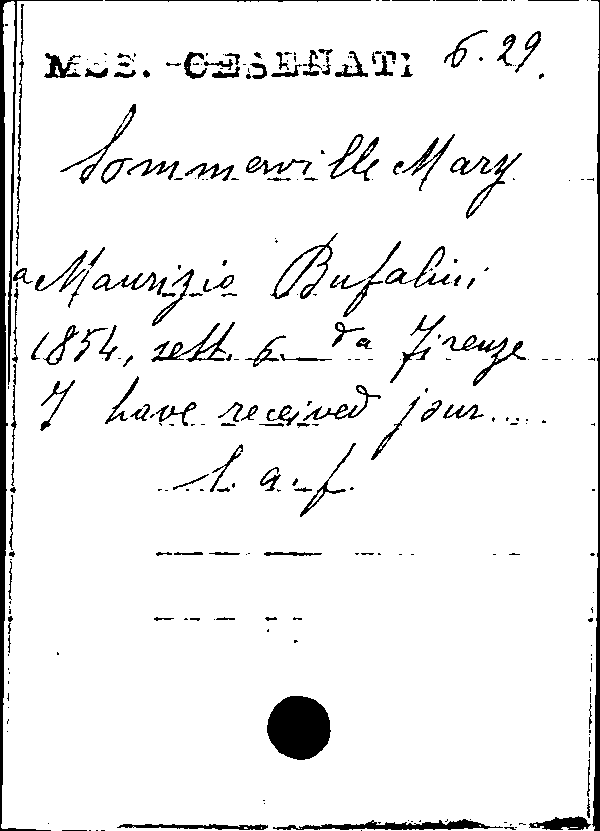 MSS. CESENATI 6.29.
Sommerville Mary
a Maurizio Bufalini
1854, sett. 6. da Firenze
I have received jour....
l. a. f.